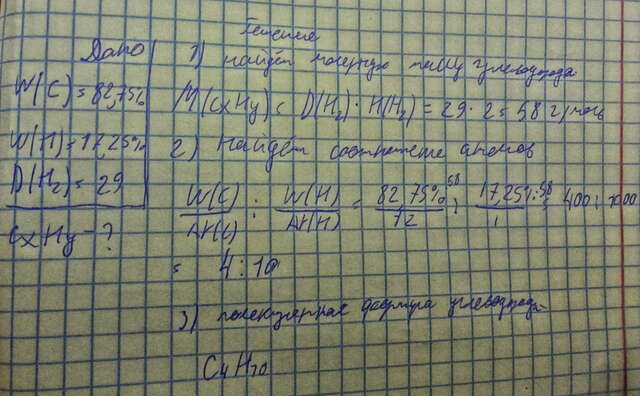 Дано
W(C) = 82,75%
W(H) = 17,25%
D(H₂) = 29
CxHy - ?
Решение
1) найдём молярную массу углеводорода
M(CxHy) = D(H₂) · M(H₂) = 29 · 2 = 58 г/моль
2) Найдём соотношение атомов
W(C)/Ar(C) : W(H)/Ar(H) = 82,75%·58/12 : 17,25%·58/1 = 400 : 1000
= 4 : 10
3) молекулярная формула углеводорода
C₄H₁₀